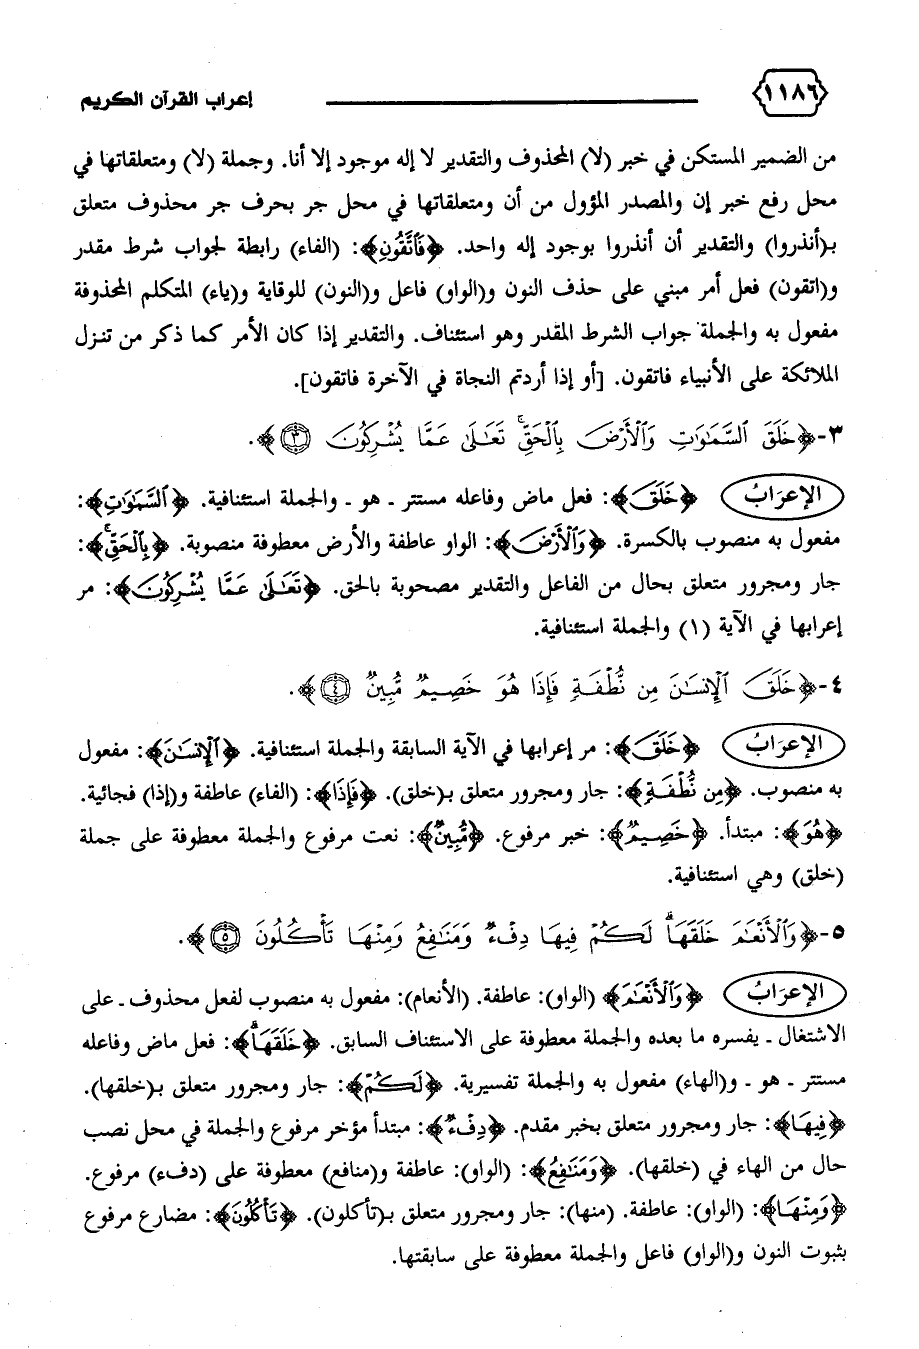 ١١٨٦ إعراب القرآن الكريم
من الضمير المستكن في خبر (لا) المحذوف والتقدير لا إله موجود إلا أنا. وجملة (لا) ومتعلقاتها في
محل رفع خبر إن والمصدر المؤول من أن ومتعلقاتها في محل جر بحرف جر محذوف متعلق
بـ(أنذروا) والتقدير أن أنذروا بوجود إله واحد. ﴿فَٱتَّقُونِ﴾: (الفاء) رابطة لجواب شرط مقدر
و(اتقون) فعل أمر مبني على حذف النون و(الواو) فاعل و(النون) للوقاية و(ياء) المتكلم المحذوفة
مفعول به والجملة جواب الشرط المقدر وهو استئناف. والتقدير إذا كان الأمر كما ذكر من تنزل
الملائكة على الأنبياء فاتقون. [أو إذا أردتم النجاة في الآخرة فاتقون].
٣-﴿خَلَقَ ٱلسَّمَٰوَٰتِ وَٱلْأَرْضَ بِٱلْحَقِّ ۚ تَعَٰلَىٰ عَمَّا يُشْرِكُونَ ٣﴾.
الإعرَابُ ﴿خَلَقَ﴾: فعل ماض وفاعله مستتر ـ هو ـ والجملة استئنافية. ﴿ٱلسَّمَٰوَٰتِ﴾:
مفعول به منصوب بالكسرة. ﴿وَٱلْأَرْضَ﴾: الواو عاطفة والأرض معطوفة منصوبة. ﴿بِٱلْحَقِّ ۚ﴾:
جار ومجرور متعلق بحال من الفاعل والتقدير مصحوبة بالحق. ﴿تَعَٰلَىٰ عَمَّا يُشْرِكُونَ﴾: مر
إعرابها في الآية (١) والجملة استئنافية.
٤-﴿خَلَقَ ٱلْإِنسَٰنَ مِن نُّطْفَةٍ فَإِذَا هُوَ خَصِيمٌ مُّبِينٌ ٤﴾.
الإعرَابُ ﴿خَلَقَ﴾: مر إعرابها في الآية السابقة والجملة استئنافية. ﴿ٱلْإِنسَٰنَ﴾: مفعول
به منصوب. ﴿مِن نُّطْفَةٍ﴾: جار ومجرور متعلق بـ(خلق). ﴿فَإِذَا﴾: (الفاء) عاطفة و(إذا) فجائية.
﴿هُوَ﴾: مبتدأ. ﴿خَصِيمٌ﴾: خبر مرفوع. ﴿مُّبِينٌ﴾: نعت مرفوع والجملة معطوفة على جملة
(خلق) وهي استئنافية.
٥-﴿وَٱلْأَنْعَٰمَ خَلَقَهَا ۗ لَكُمْ فِيهَا دِفْءٌ وَمَنَٰفِعُ وَمِنْهَا تَأْكُلُونَ ٥﴾.
الإعرَابُ ﴿وَٱلْأَنْعَٰمَ﴾ (الواو): عاطفة. (الأنعام): مفعول به منصوب لفعل محذوف ـ على
الاشتغال ـ يفسره ما بعده والجملة معطوفة على الاستئناف السابق. ﴿خَلَقَهَا ۗ﴾: فعل ماض وفاعله
مستتر ـ هو ـ و(الهاء) مفعول به والجملة تفسيرية. ﴿لَكُمْ﴾: جار ومجرور متعلق بـ(خلقها).
﴿فِيهَا﴾: جار ومجرور متعلق بخبر مقدم. ﴿دِفْءٌ﴾: مبتدأ مؤخر مرفوع والجملة في محل نصب
حال من الهاء في (خلقها). ﴿وَمَنَٰفِعُ﴾: (الواو): عاطفة و(منافع) معطوفة على (دفء) مرفوع.
﴿وَمِنْهَا﴾: (الواو): عاطفة. (منها): جار ومجرور متعلق بـ(تأكلون). ﴿تَأْكُلُونَ﴾: مضارع مرفوع
بثبوت النون و(الواو) فاعل والجملة معطوفة على سابقتها.